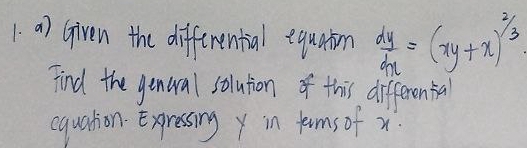 1. a) Given the differential equation dy/dx = (xy+x)^2/3.
Find the general solution of this differential
equation. Expressing y in terms of x.